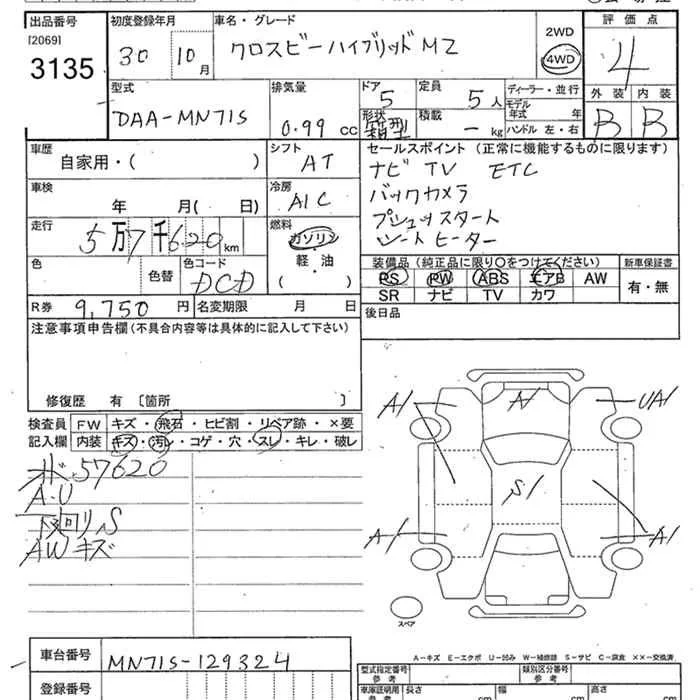 出品番号 初度登録年月 車名・グレード 評価点
[2069] 3135 30 10月 クロスビーハイブリッドMZ 2WD 4WD 4
型式 排気量 ドア 定員 ディーラー・並行 外装 内装
DAA-MN71S 0.99 cc 5 5人 モデル年式 年 B B
形状 箱型 積載 - kg ハンドル 左・右
車歴 シフト セールスポイント (正常に機能するものに限ります)
自家用・( ) AT ナビ TV ETC
車検 冷房 バックカメラ
年 月( 日) A/C プシュッスタート
走行 5万7千620km 燃料 シートヒーター
ガソリン
軽・油
( )
色 色替 色コード DCD 装備品 (純正品に限り○をつけてください) 新車保証書
PS PW ABS エアB AW 有・無
R券 9,750円 名変期限 月 日 SR ナビ TV カワ
注意事項申告欄(不具合内容等は具体的に記入して下さい) 後日品
修復歴 有 〔箇所 〕
検査員 FW キズ・飛石・ヒビ割・リペア跡・×要
記入欄 内装 キズ・汚レ・コゲ・穴・スレ・キレ・破レ
57620
A・U
下廻リS
AWキズ
A1 A1 UA1
S1
A1 A1
スペア
A-キズ E-エクボ U-凹み W-補修跡 S-サビ C-腐食 ××-交換済
車台番号 MN71S-129324 型式指定番号 参考 類別区分番号 参考
登録番号 車庫証明用 参考 長さ cm 幅 cm 高さ cm